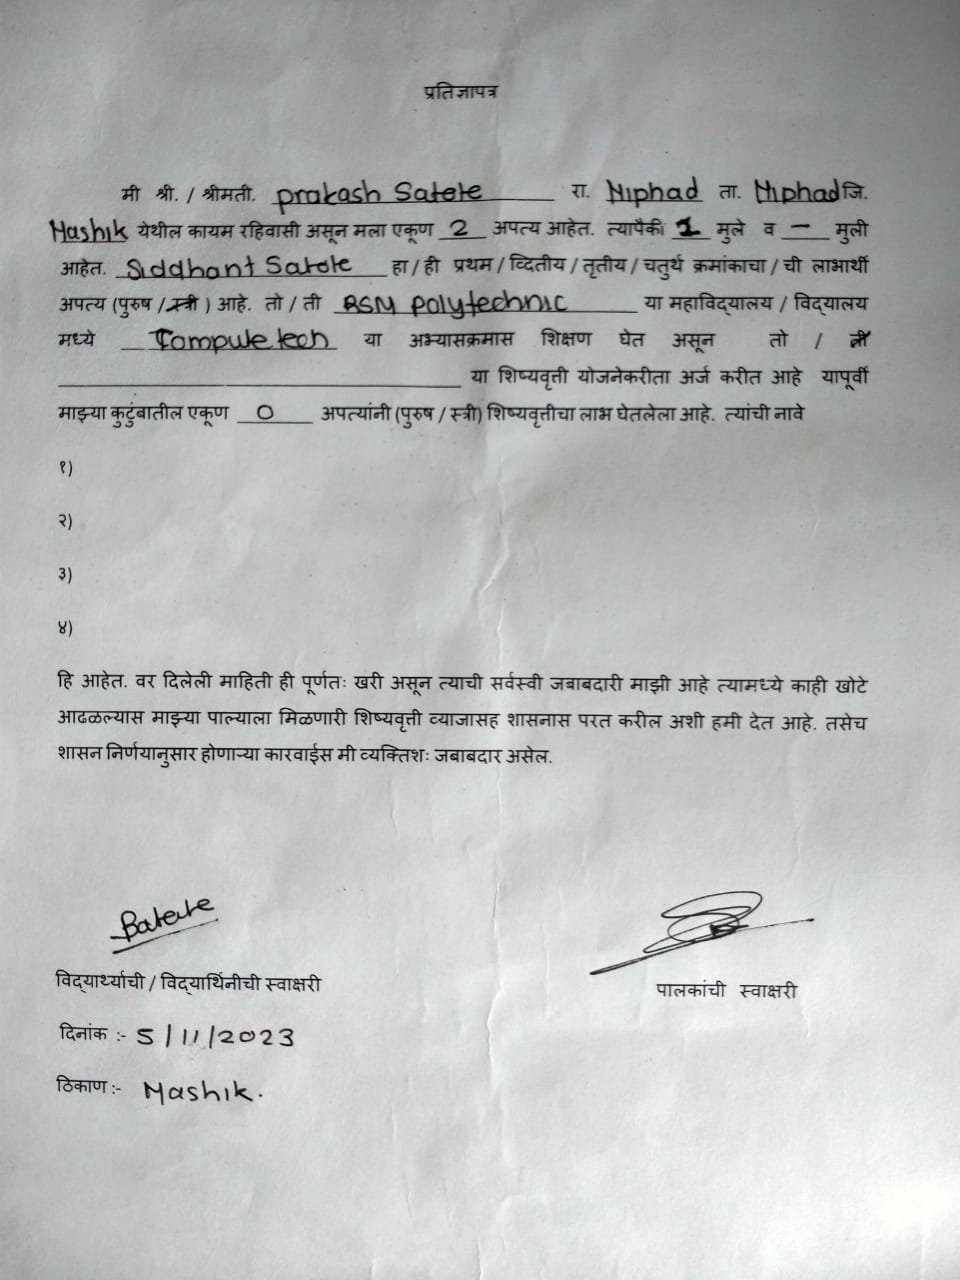 प्रतिज्ञापत्र
मी श्री. / श्रीमती. prakash Satete रा. Niphad ता. Niphad जि.
Nashik येथील कायम रहिवासी असून मला एकूण 2 अपत्य आहेत. त्यापैकी 1 मुले व - मुली
आहेत. Siddhant Satote हा / ही प्रथम / व्दितीय / तृतीय / चतुर्थ क्रमांकाचा / ची लाभार्थी
अपत्य (पुरुष / स्त्री ) आहे. तो / ती RSM polytechnic या महाविद्यालय / विद्यालय
मध्ये Compute tech या अभ्यासक्रमास शिक्षण घेत असून तो / ती
या शिष्यवृत्ती योजनेकरीता अर्ज करीत आहे यापूर्वी
माझ्या कुटुंबातील एकूण 0 अपत्यांनी (पुरुष / स्त्री) शिष्यवृत्तीचा लाभ घेतलेला आहे. त्यांची नावे
१)
२)
३)
४)
हि आहेत. वर दिलेली माहिती ही पूर्णतः खरी असून त्याची सर्वस्वी जबाबदारी माझी आहे त्यामध्ये काही खोटे
आढळल्यास माझ्या पाल्याला मिळणारी शिष्यवृत्ती व्याजासह शासनास परत करील अशी हमी देत आहे. तसेच
शासन निर्णयानुसार होणाऱ्या कारवाईस मी व्यक्तिशः जबाबदार असेल.
विद्यार्थ्याची / विद्यार्थिनीची स्वाक्षरी
पालकांची स्वाक्षरी
दिनांक :- 5/11/2023
ठिकाण :- Nashik.